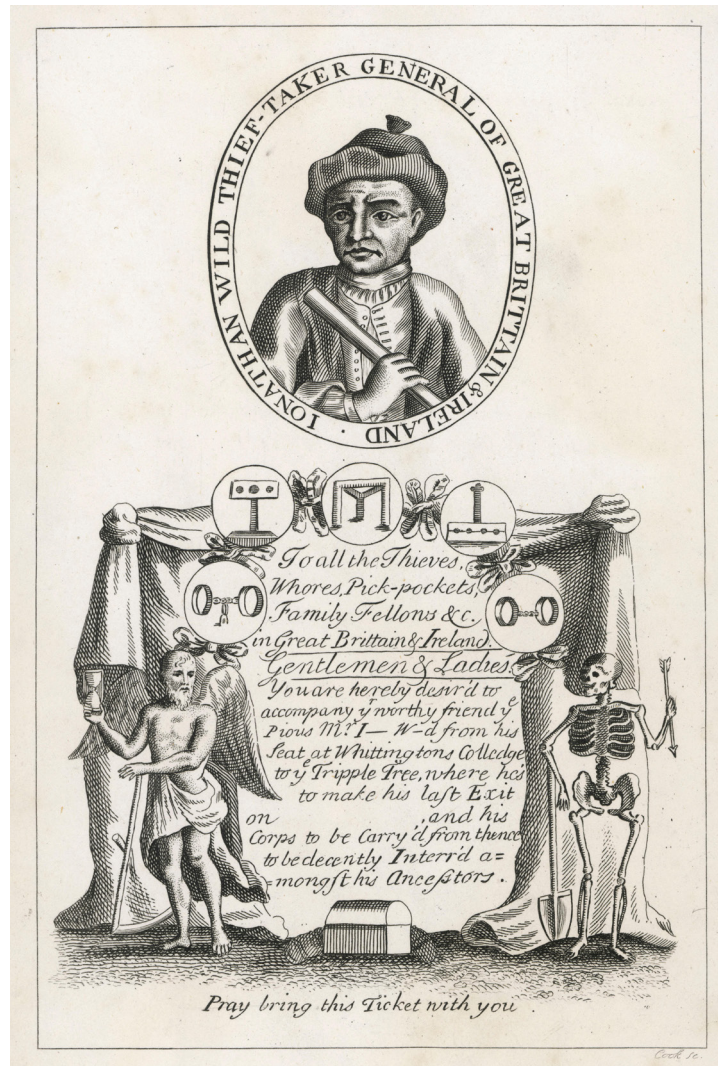 IONATHAN WILD THIEF-TAKER GENERAL OF GREAT BRITTAIN & IRELAND .
To all the Thieves,
Whores, Pick-pockets,
Family Fellons &c.
in Great Brittain & Ireland.
Gentlemen & Ladies.
You are hereby desir'd to
accompany yr worthy friend ye
Pious Mr. I— W–d from his
Seat at Whittingtons Colledge
to ye Tripple Tree, where he's
to make his last Exit
on , and his
Corps to be Carry'd from thence
to be decently Interr'd a=
=mongst his Ancestors.
Pray bring this Ticket with you
Cook sc.